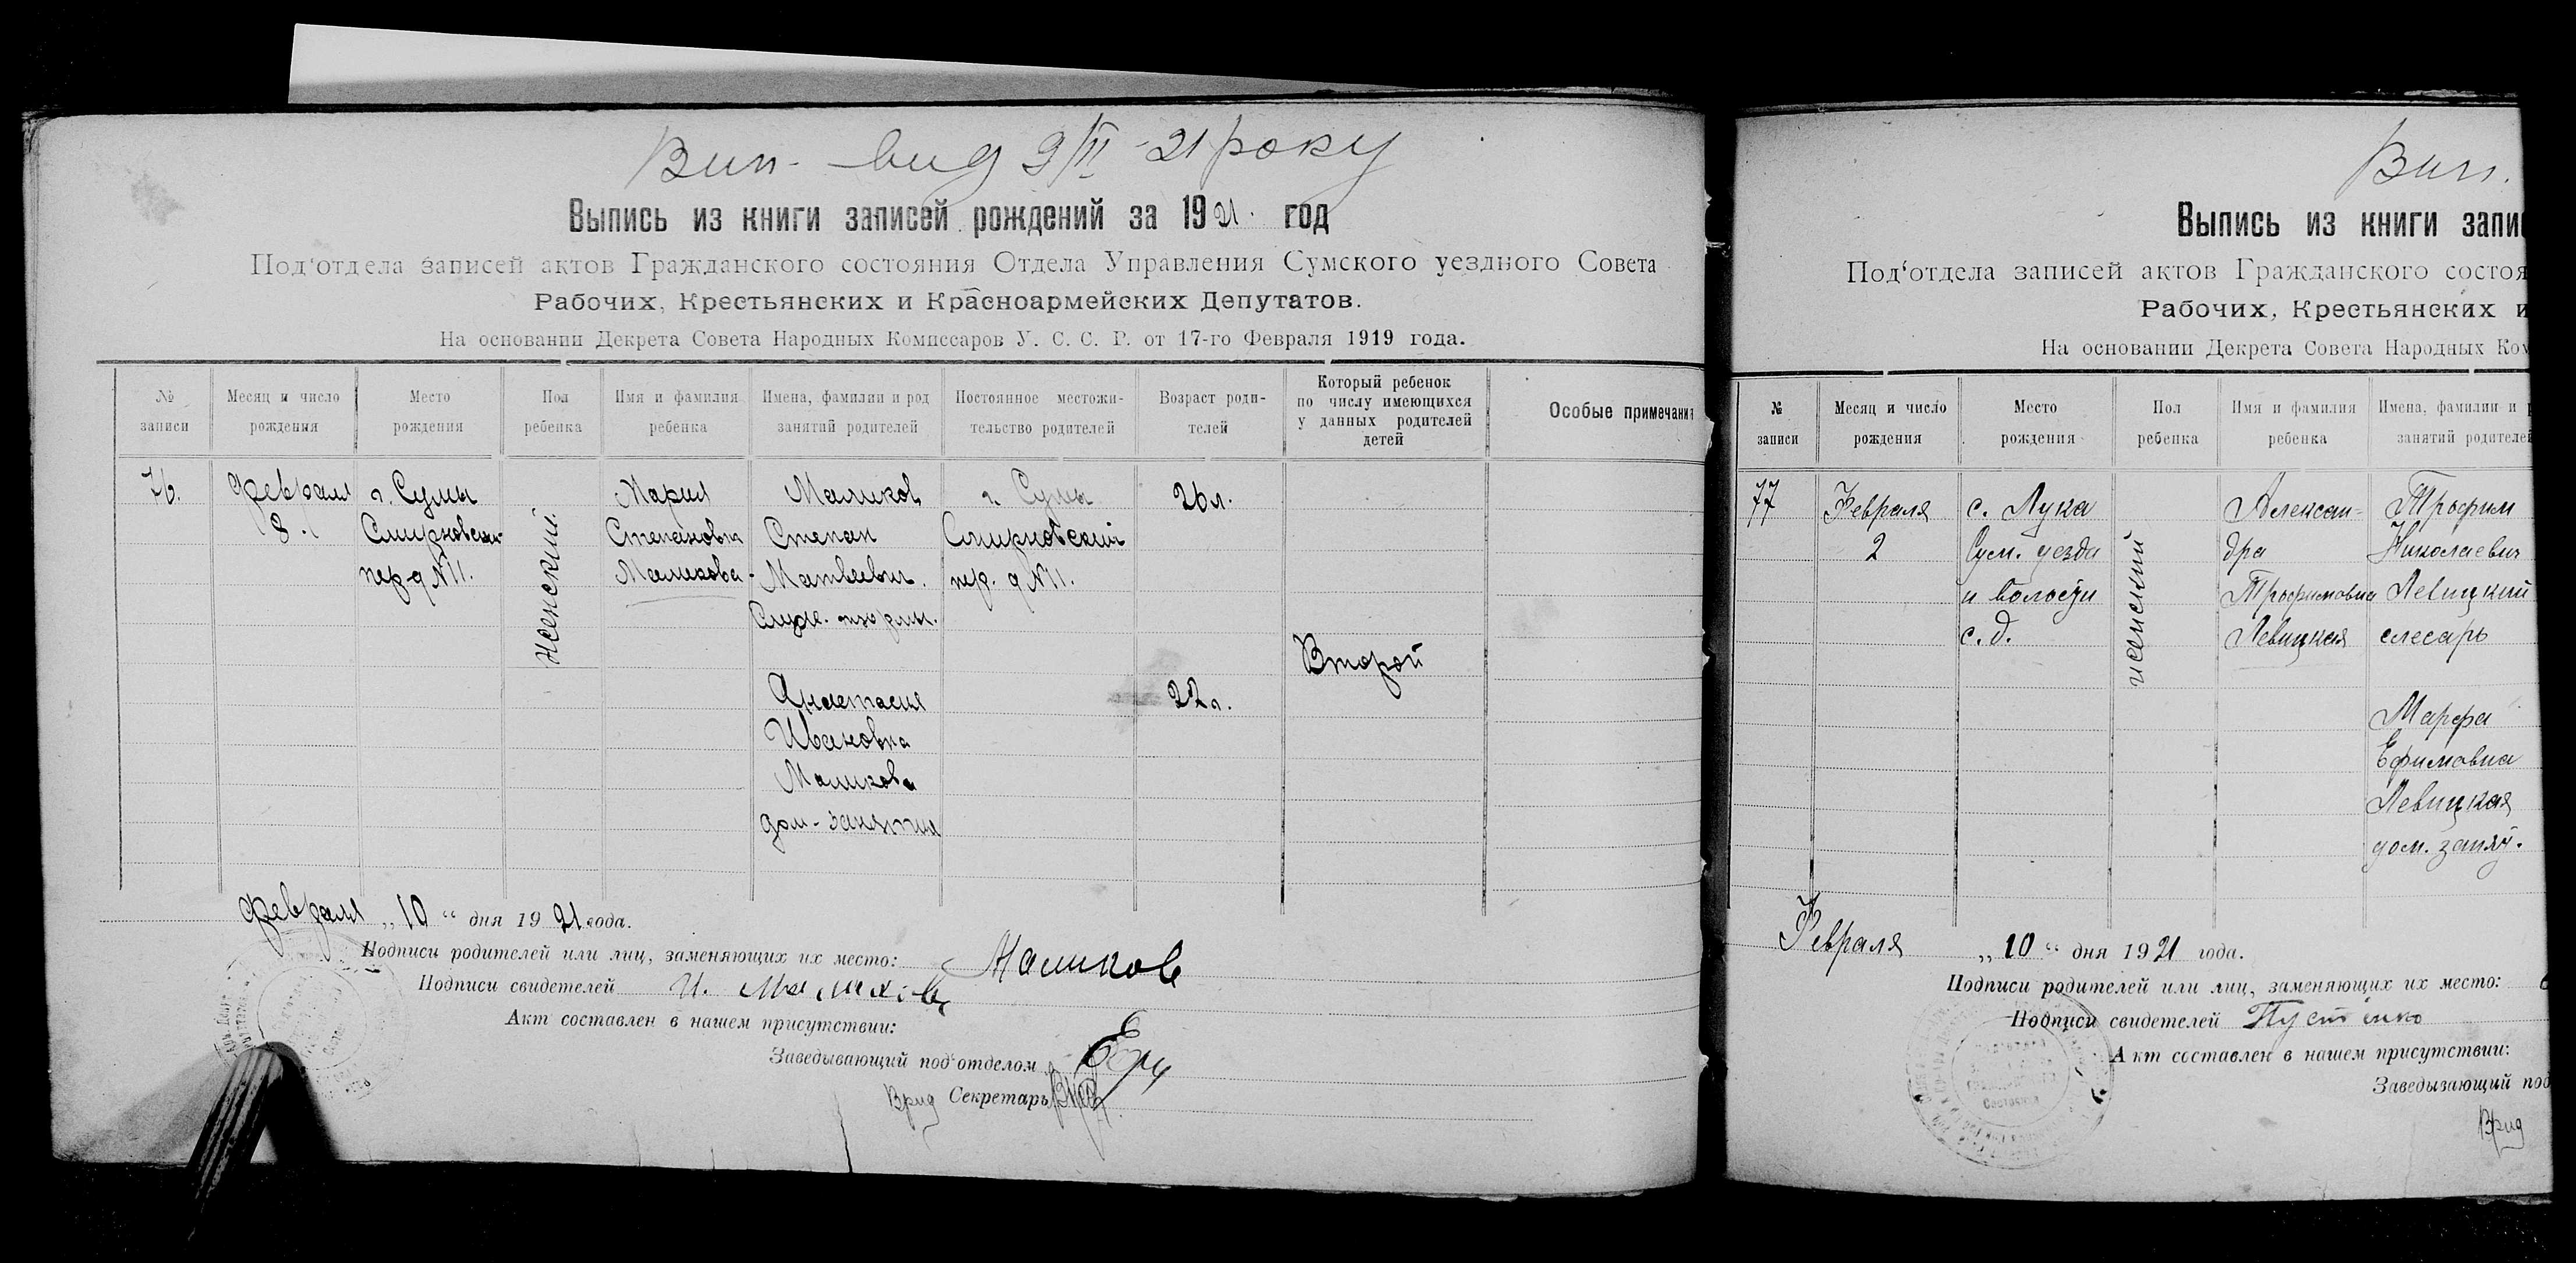 Вип- вид 9/III-21 року
Выпись из книги записей рождений за 1921. год
Под‘отдела записей актов Гражданского состояния Отдела Управления Сумского уездного Совета
Рабочих, Крестьянских и Красноармейских Депутатов.
На основании Декрета Совета Народных Комиссаров У. С. С. Р. от 17-го Февраля 1919 года.
№ записи
Месяц и число рождения
Место рождения
Пол ребенка
Имя и фамилия ребенка
Имена, фамилии и род занятий родителей
Постоянное местожительство родителей
Возраст родителей
Который ребенок по числу имеющихся у данных родителей детей
Особые примечания
76.
февраля
8.
г. Сумы
Смирновский
пер. д N11.
женский.
Мария
Степановна
Маликова
Маликов
Степан
Матвеевич.
Служ.
Анастасия
Ивановна
Маликова
дом-занятия
г. Сумы
Смирновский
пер. д N11.
26л.
22л.
Второй
февраля „10“ дня 1921 года.
Подписи родителей или лиц, заменяющих их место: Маликов
Подписи свидетелей И.
Акт составлен в нашем присутствии:
Заведывающий под‘отделом
Врид Секретарь
Вип.
Выпись из книги запи
Под‘отдела записей актов Гражданского состоя
Рабочих, Крестьянских и
На основании Декрета Совета Народных Ком
№ записи
Месяц и число рождения
Место рождения
Пол ребенка
Имя и фамилия ребенка
Имена, фамилии и р
занятий родителей
77
Февраля
2
с. Лука
Сум. уезда
и волости
с. д.
женский
Алексан-
дра
Трофимовна
Левицкая
Трофим
Николаевич
Левицкий
слесарь
Марфа
Ефимовна
Левицкая
дом. занят.
Февраля „10“ дня 1921 года.
Подписи родителей или лиц, заменяющих их место:
Подписи свидетелей
Акт составлен в нашем присутствии:
Заведывающий под
Врид